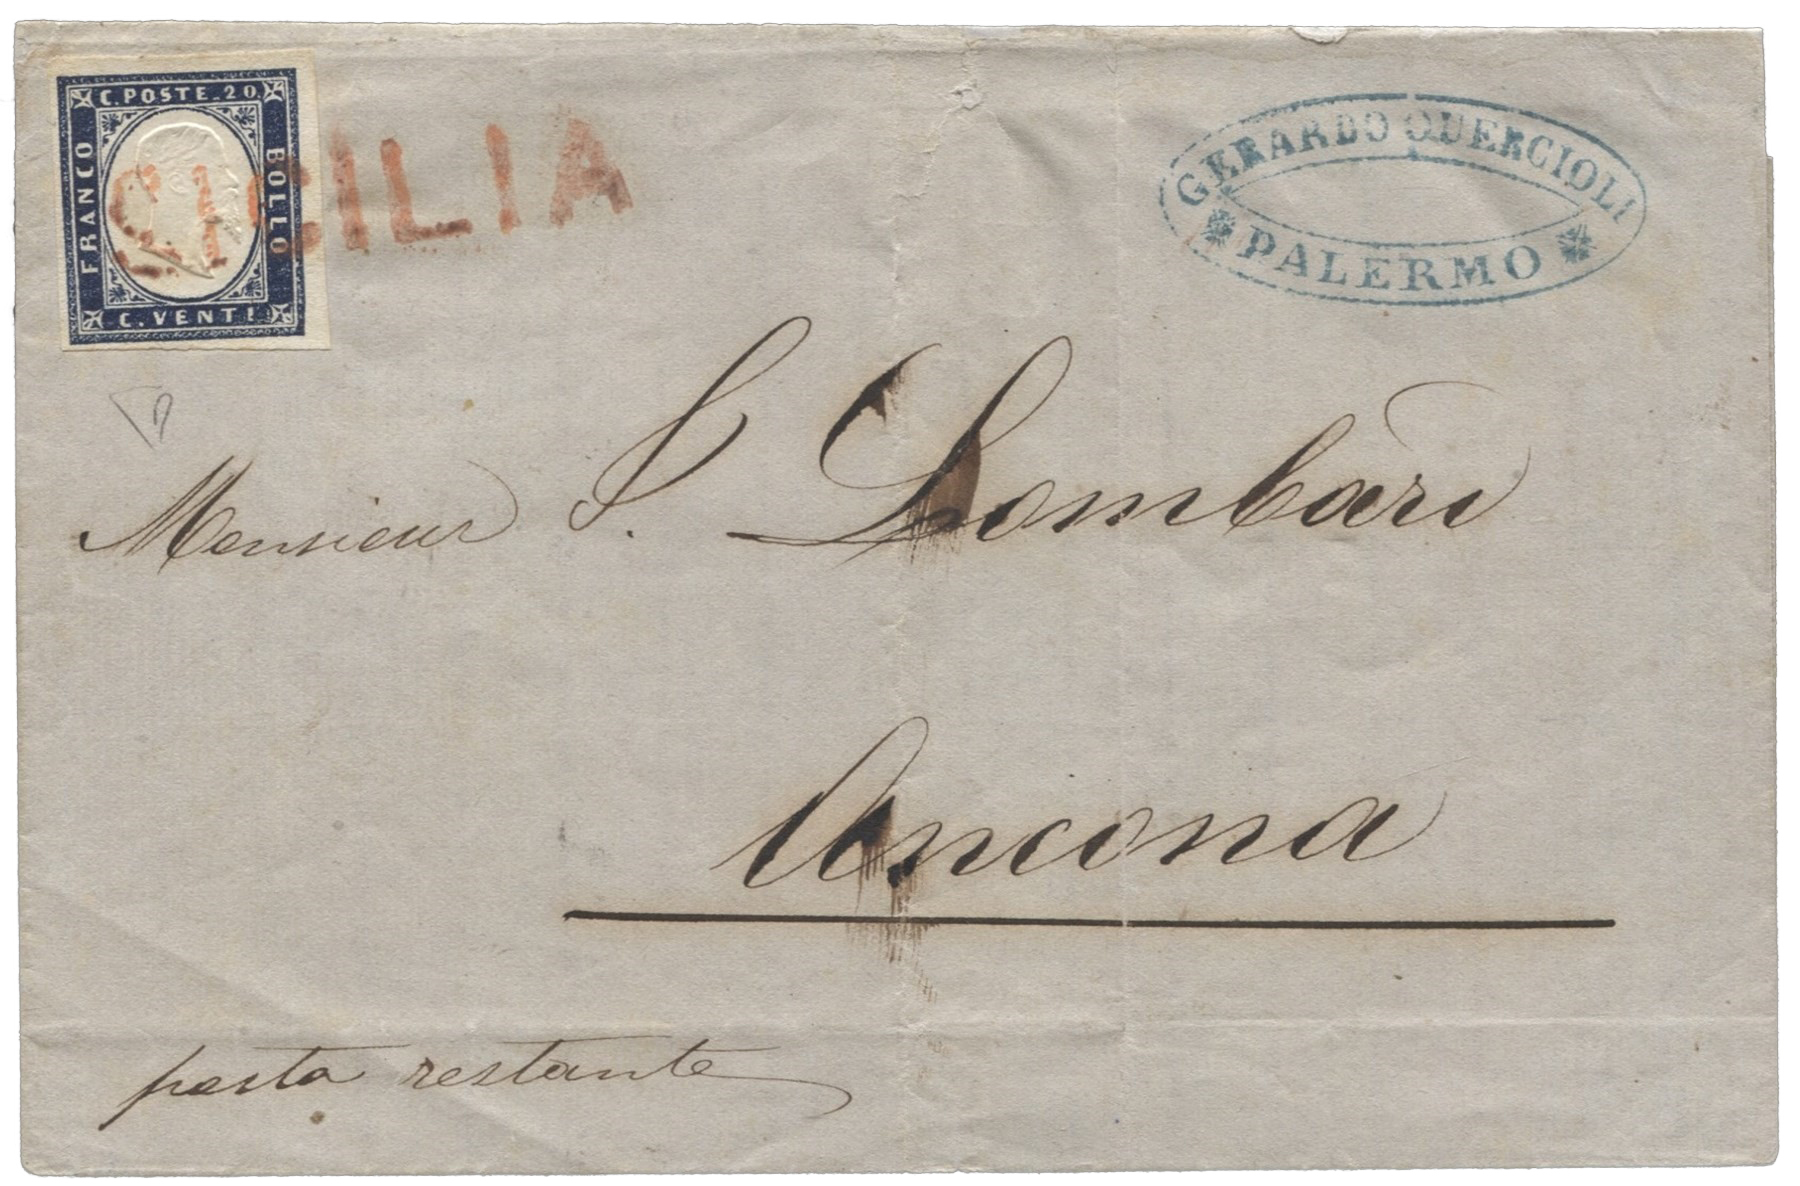 C. POSTE. 20.
FRANCO
BOLLO
C. VENTI
SICILIA
GERARDO QUERCIOLI
PALERMO
Monsieur S. Lombari
Ancona
posta restante